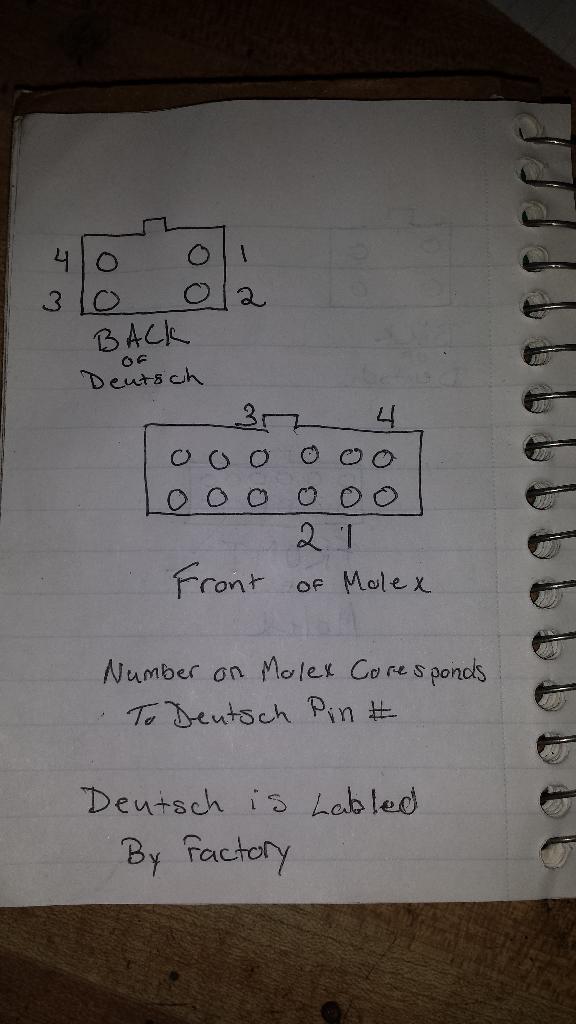 4 1
3 2
BACK
OF
Deutsch
3 4
2 1
Front OF Molex
Number on Molex Coresponds
To Deutsch Pin #
Deutsch is Labled
By Factory